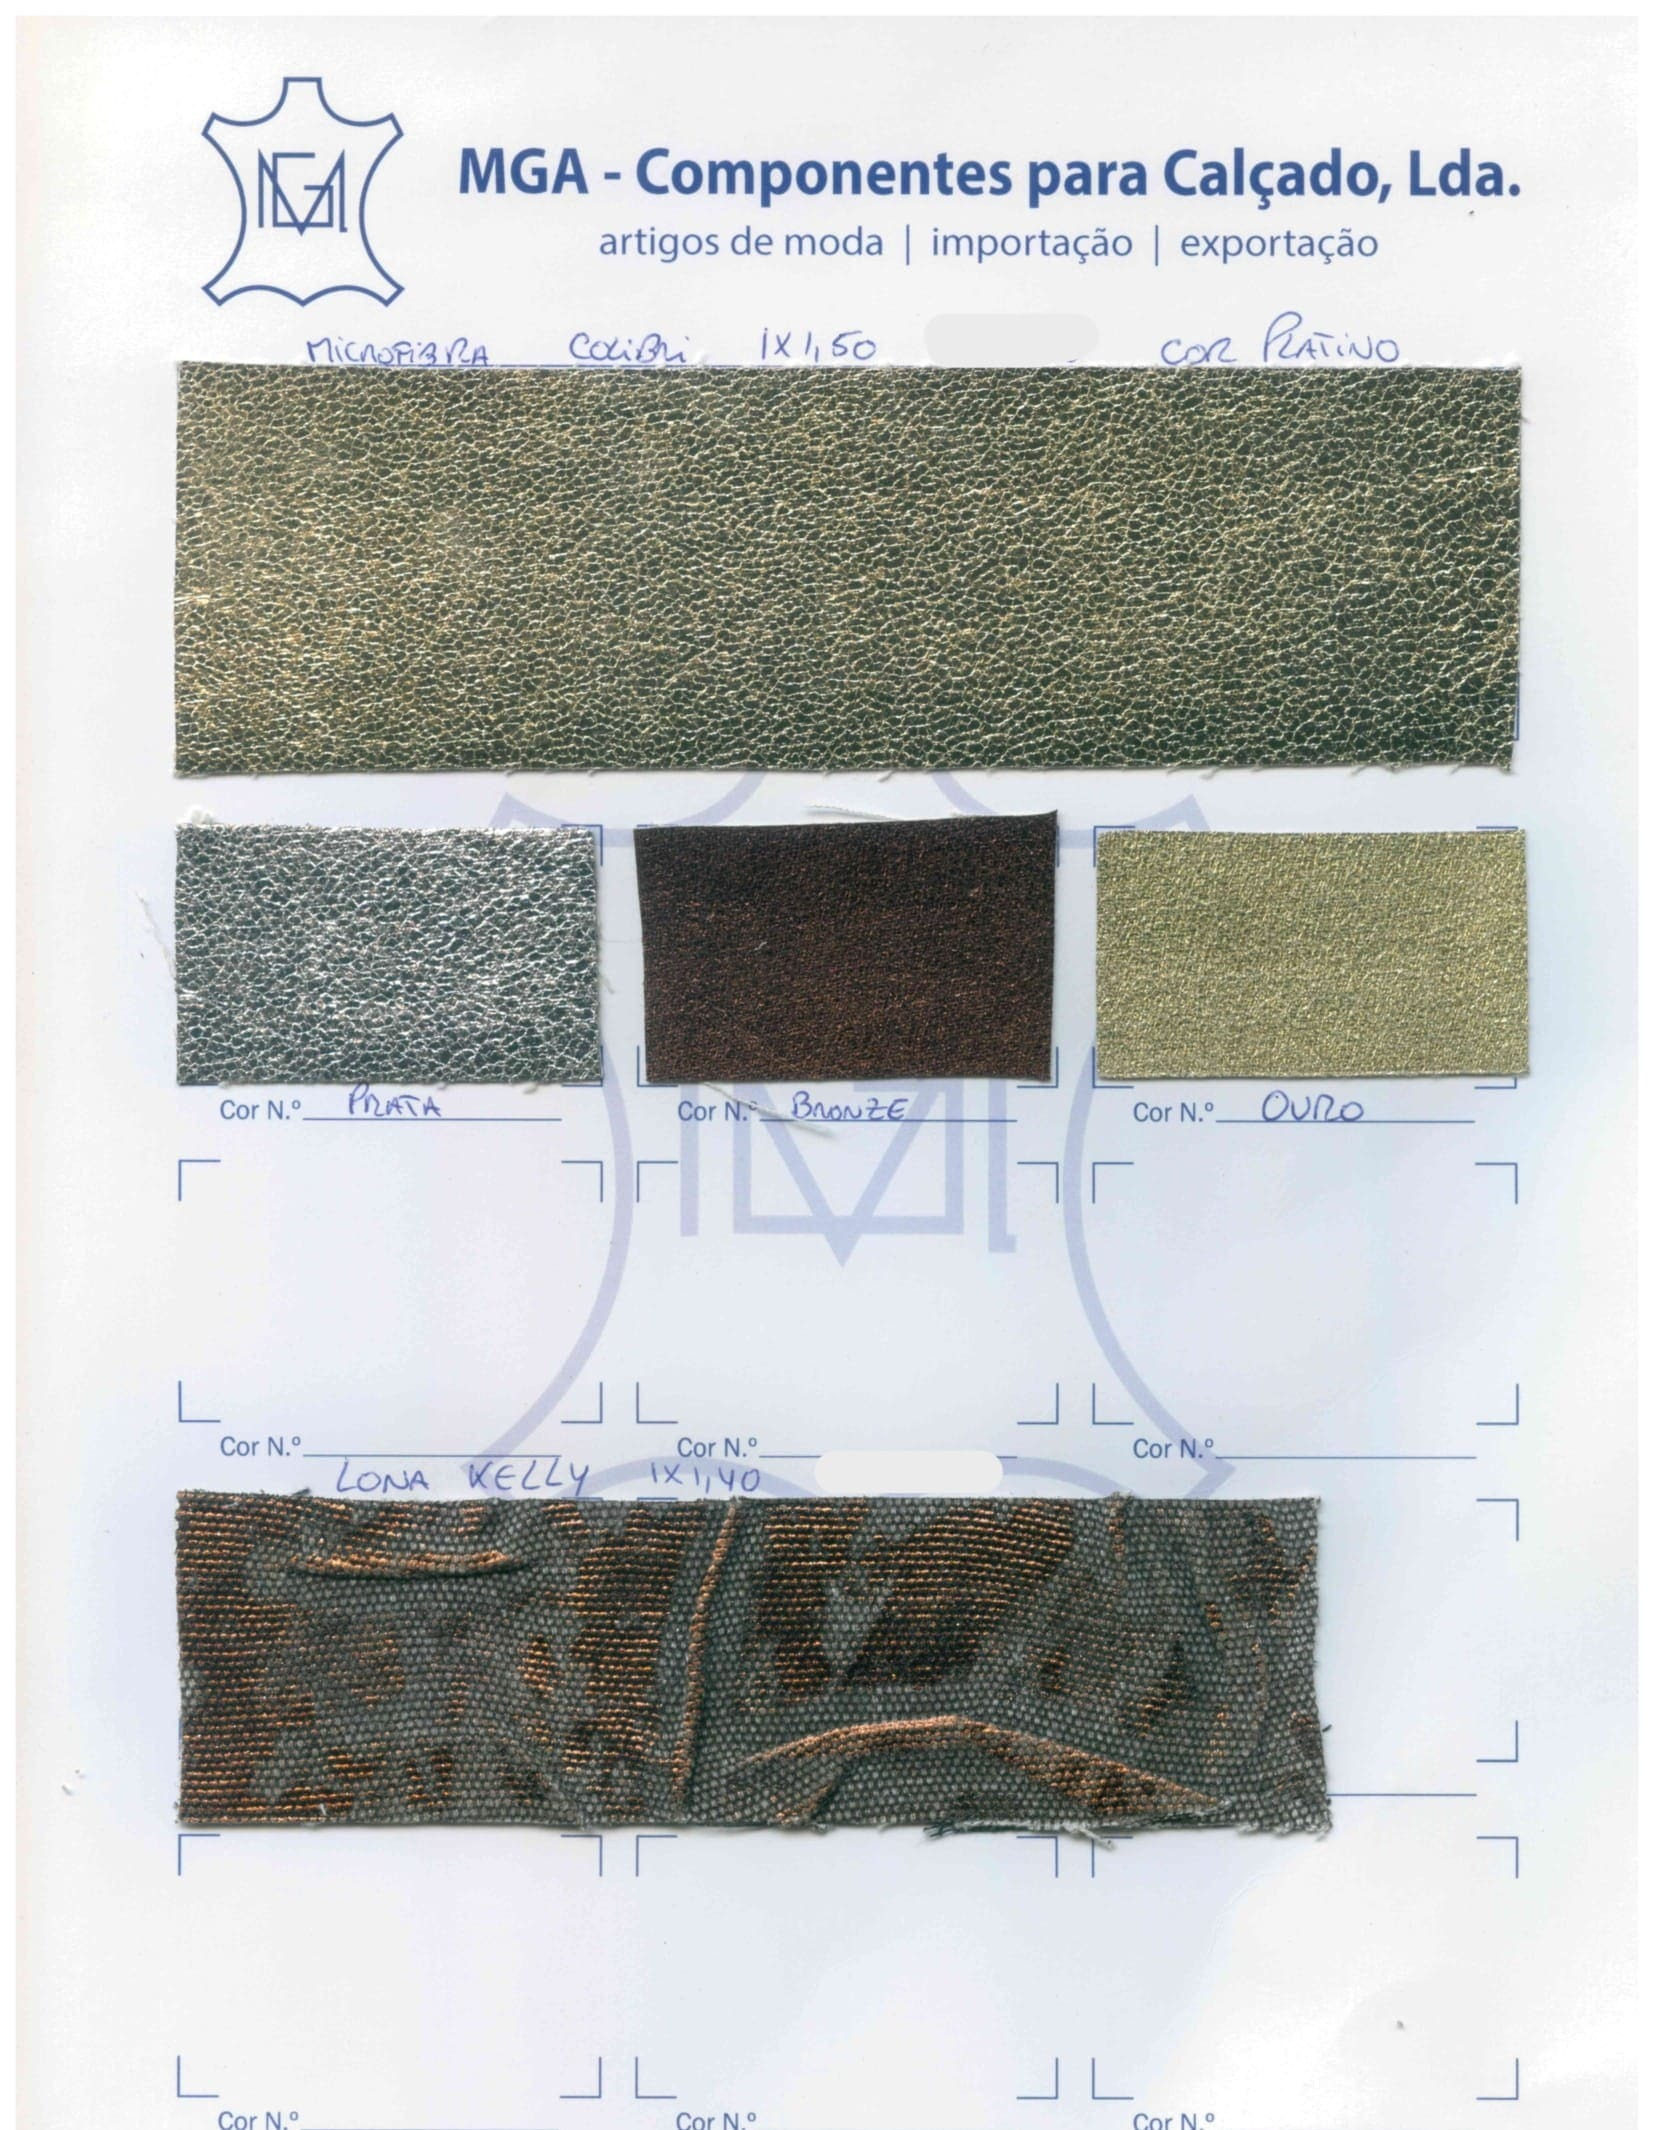 MGA
MGA - Componentes para Calçado, Lda.
artigos de moda | importação | exportação
MICROFIBRA COLIBRI 1X1,50 COR PLATINO
Cor N.º PRATA Cor N.º BRONZE Cor N.º OURO
Cor N.º Cor N.º Cor N.º
LONA KELLY 1X1,40
Cor N.º Cor N.º Cor N.º